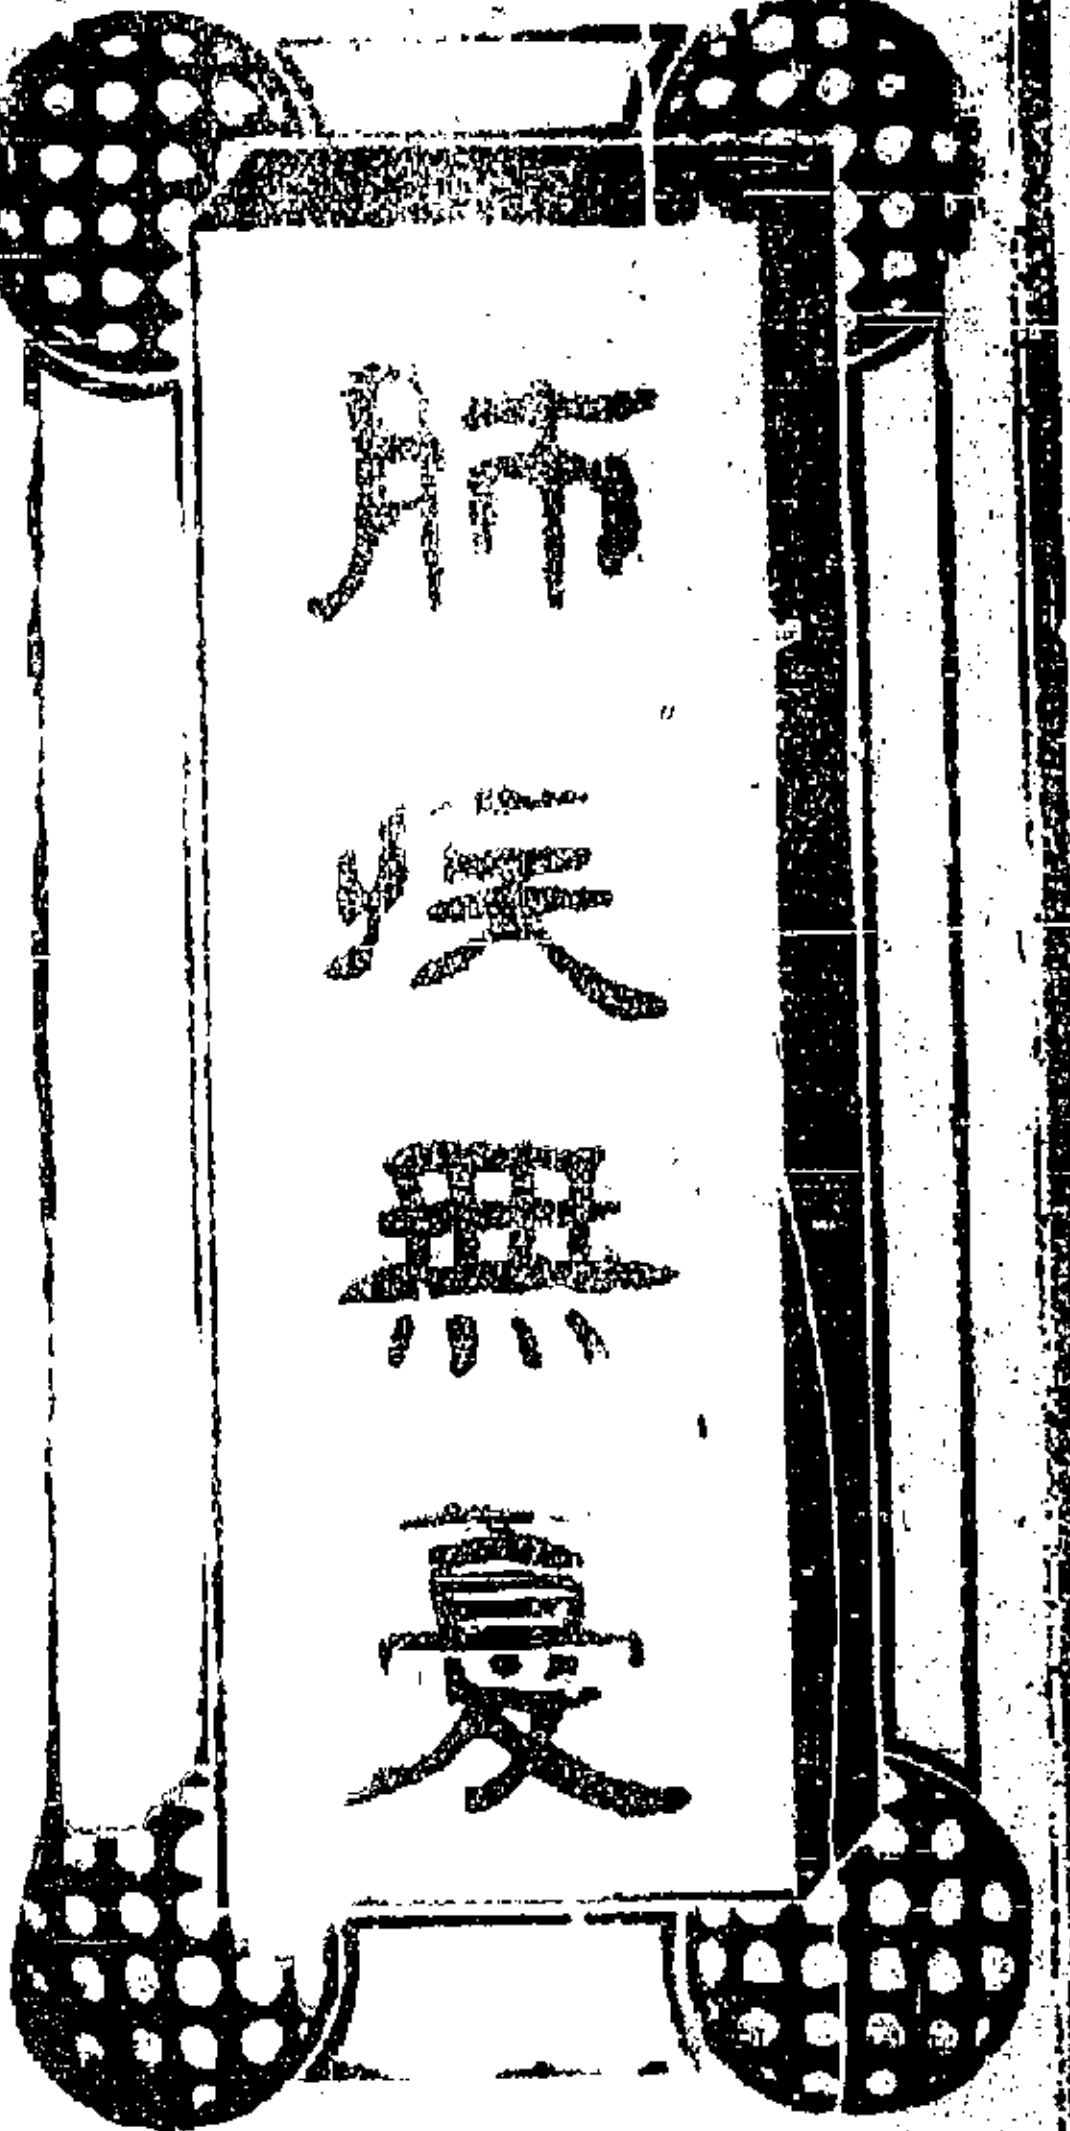 肺疾無憂